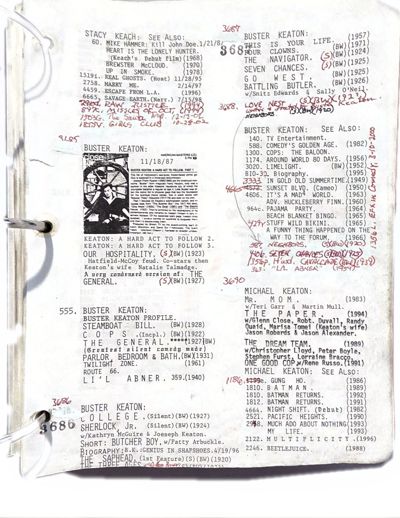 STACY KEACH: SEE ALSO:
60. MIKE HAMMER: Kill John Doe.1/21/8
HEART IS THE LONELY HUNTER.
(Keach's Debut Film)(1968)
BREWSTER McCLOUD. (1970)
UP IN SMOKE. (1978)
15191. REAL GHOSTS. (Host) 11/28/95
2758. MARRY ME. 2/14/97
4459. ESCAPE FROM L.A. (1996)
6665. SAVAGE EARTH.(Narr.) 7/15/98
GIRLS CLUB
BUSTER KEATON:
11/18/87
KEATON: A HARD ACT TO FOLLOW 2.
KEATON: A HARD ACT TO FOLLOW 3.
OUR HOSPITALITY.(S)(BW)(1923)
Hatfield-McCoy feud. Co-stars then
Keaton's wife Natalie Talmadge.
A very condensed version of: THE
GENERAL. (S)(BW)(1927)
555. BUSTER KEATON:
BUSTER KEATON PROFILE.
STEAMBOAT BILL. (BW)(1928)
COPS. (Incpl.) (BW)(1922)
THE GENERAL.*****(BW)(1927)
(Greatest silent comedy made)
PARLOR, BEDROOM & BATH.(BW)(1931)
TWILIGHT ZONE. (1961)
ROUTE 66.
LI'L ABNER. 359.(1940)
3686
3686
BUSTER KEATON:
COLLEGE.(Silent)(BW)(1927)
SHERLOCK, Jr. (Silent)(BW)(1924)
w/Kathryn McGuire & Joeseph Keaton.
SHORT: BUTCHER BOY, w/Fatty Arbuckle.
BIOGRAPHY:B.K.:GENIUS IN.SHAPSHOES.4/19/96
THE SAPHEAD.(1st Feature)(S)(BW)(1920)
THE THREE AGES.
3687
368
BUSTER KEATON: (1957)
THIS IS YOUR LIFE. (1957)
YOUR CLOWNS. (BW)(1971)
THE NAVIGATOR. (S)(BW)(1924)
SEVEN CHANCES. (S)(BW)(1925)
GO WEST. (BW)(1925)
BATTLING BUTLER. (BW)(1926)
w/Snits Edwards & Sally O'Neil.
3688. LOVE NEST
NEIGHBORS (S)(BW)(1920)
BUSTER KEATON: SEE ALSO:
140. TV Entertainment.
588. COMEDY'S GOLDEN AGE. (1982)
1300. COPS: THE BALOON.
1174. AROUND WORLD 80 DAYS. (1956)
3020. LIMELIGHT. (BW)(1952)
BIO-30. Biography. (1995)
IN GOLD OLD SUMMERTIME(1949)
SUNSET BLVD.(Cameo) (1950)
4606. IT'S A MAD4 WORLD. (1963)
ADV. HUCKLEBERRY FINN. (1960)
964c. PAJAMA PARTY. (1964)
BEACH BLANKET BINGO. (1965)
STUFF WILD BIKINIS. (1965)
A FUNNY THING HAPPENED ON THE
WAY TO THE FORUM. (1966)
587. NEIGHBORS. (S)(BW)(1920)
SEVEN CHANCES (S)(BW)(1925)
LI'L ABNER
3690
MICHAEL KEATON:
MR. MOM. (1983)
w/Teri Garr & Martin Mull.
THE PAPER. (1994)
w/Glenn Close, Robt. Duvall, Randy
Quaid, Marisa Tomei (Keaton's wife)
Jason Robards & Jason Alexander.
THE DREAM TEAM. (1989)
w/Christopher Lloyd, Peter Boyle,
Stephen Furst, Lorraine Bracco.
ONE GOOD COP w/Rene Russo.(1991)
MICHAEL KEATON: SEE ALSO:
1186. GUNG HO. (1986)
1810. BATMAN. (1989)
1810. BATMAN RETURNS. (1992)
1812. BATMAN RETURNS. (1992)
4664. NIGHT SHIFT. (Debut) (1982)
2521. PACIFIC HEIGHTS. (1990)
MUCH ADO ABOUT NOTHING(1993)
MY LIFE. (1993)
2122. MULTIPLICITY.(1996)
2246. BEETLEJUICE. (1988)